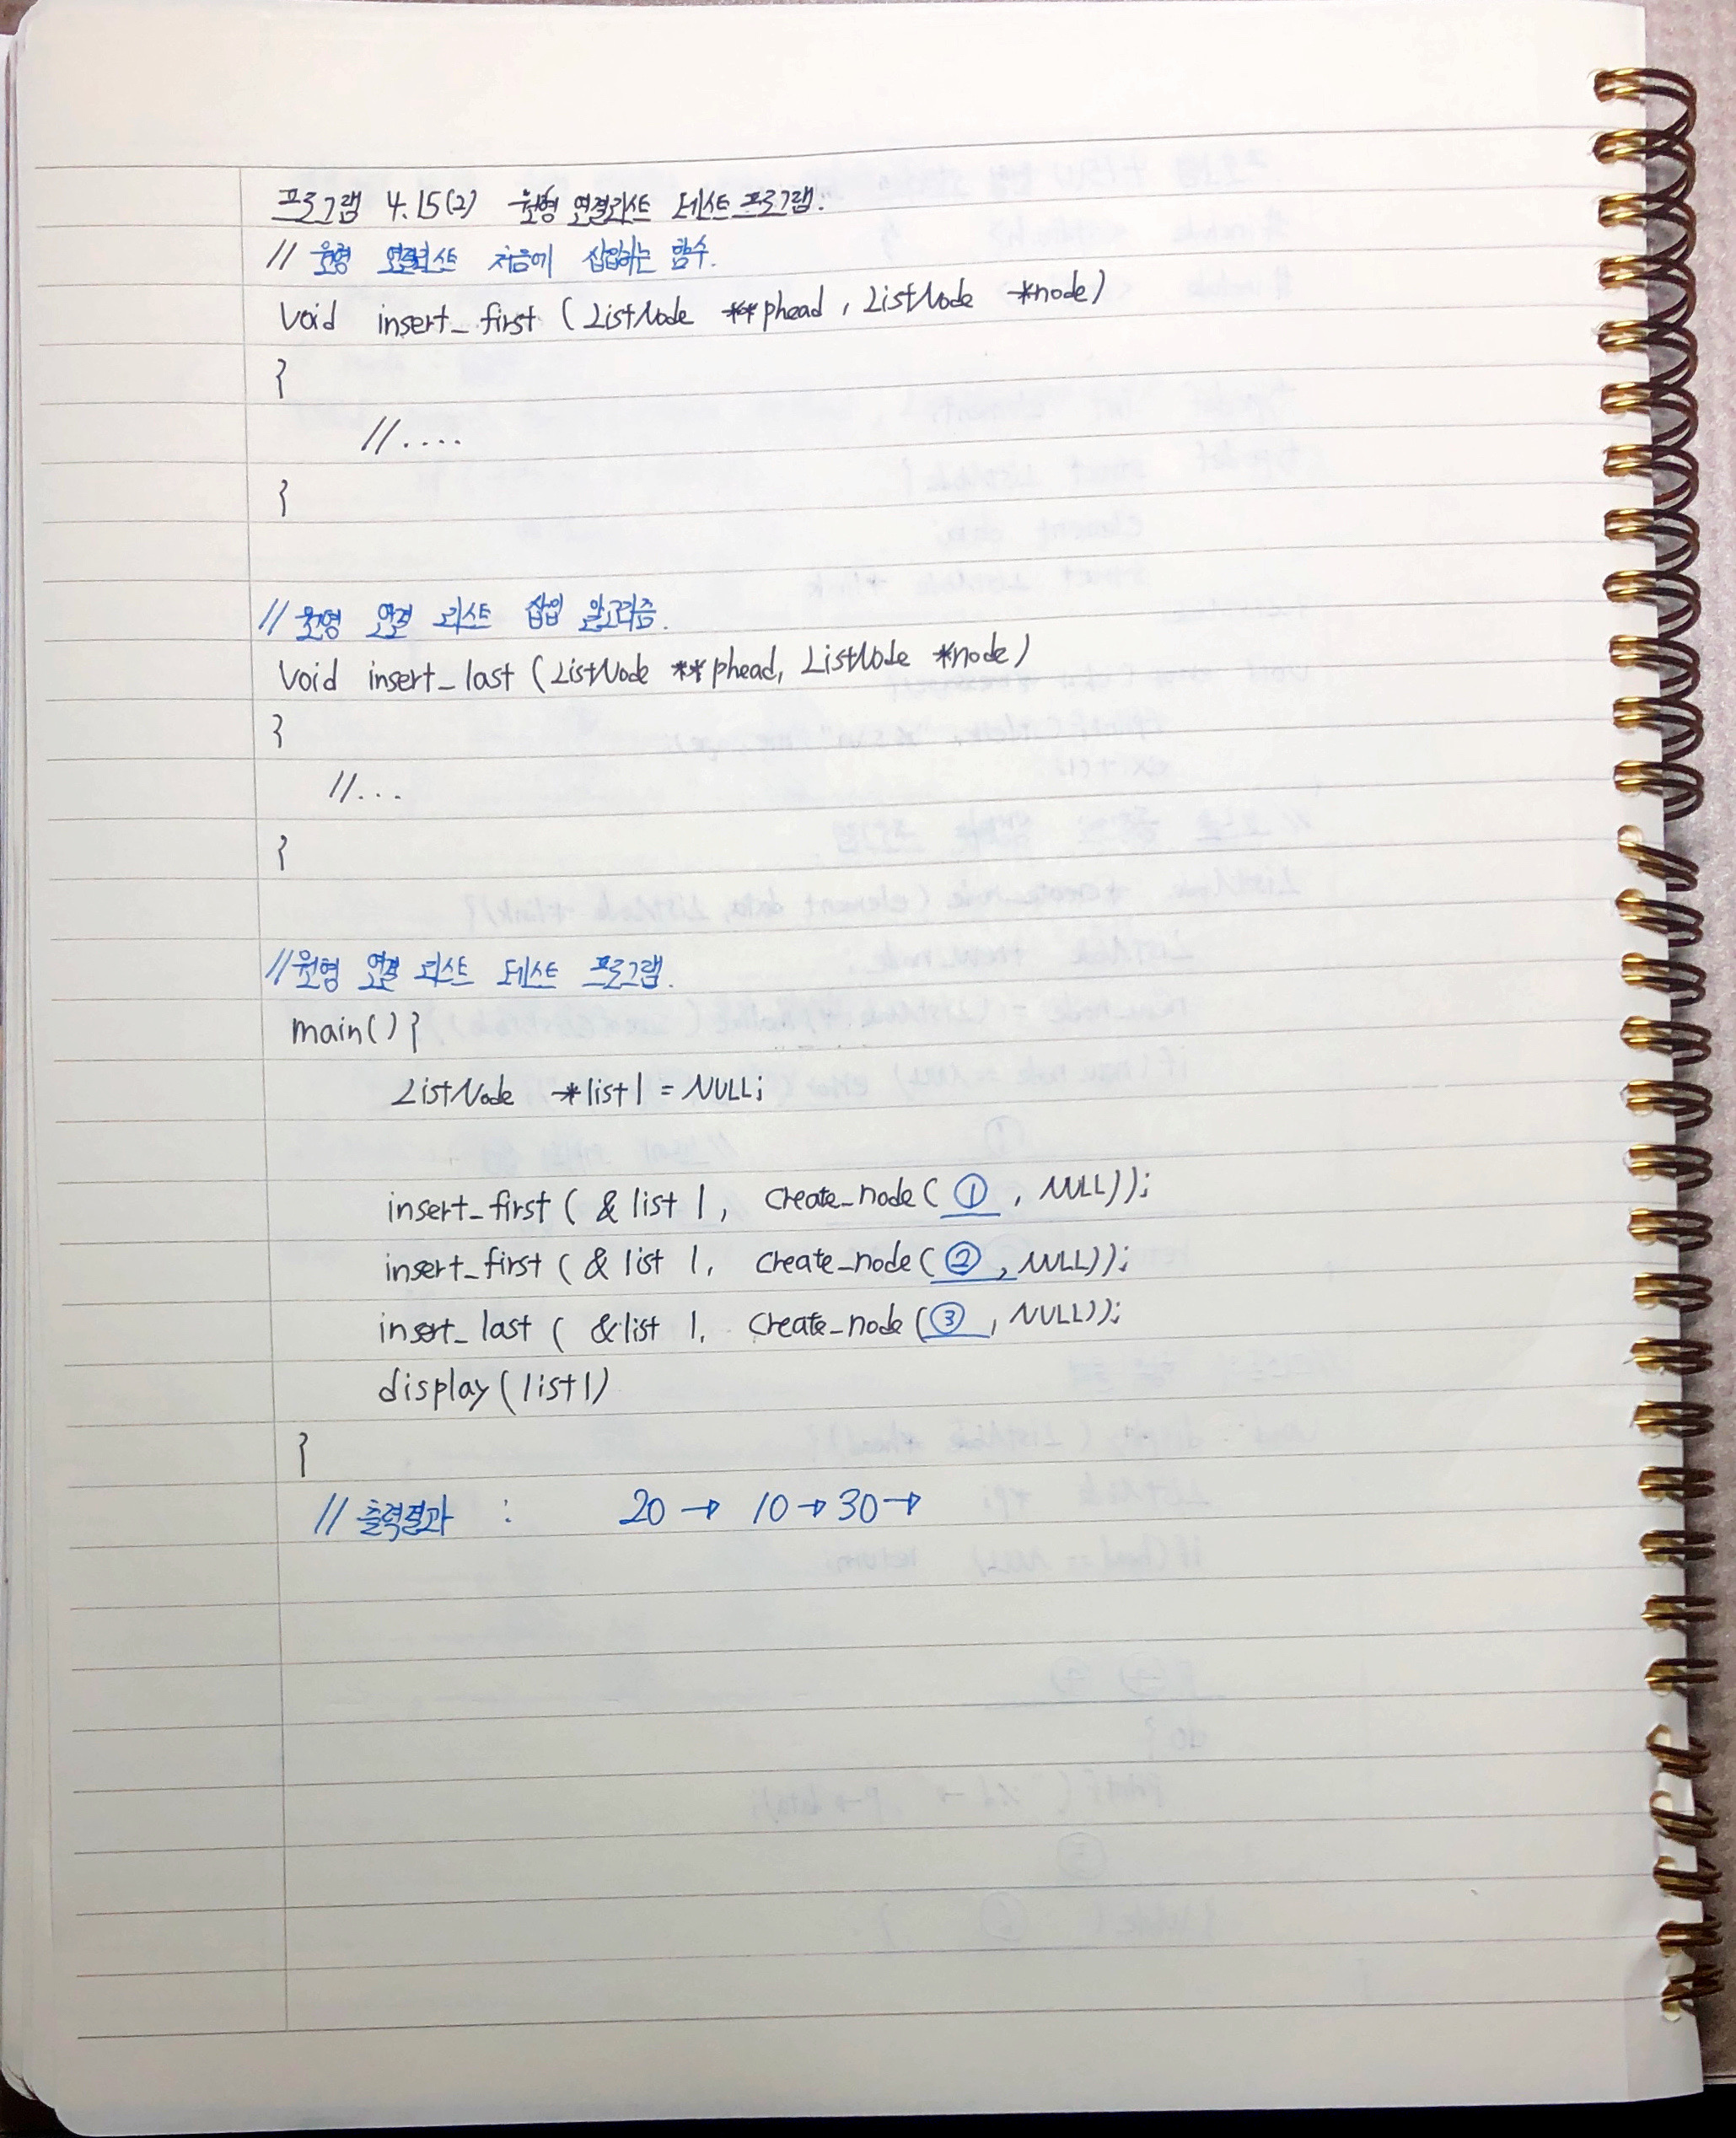 프로그램 4.15(2) 원형 연결리스트 테스트 프로그램.
// 원형 연결리스트 처음에 삽입하는 함수.
void insert_first (ListNode **phead, ListNode *node)
{
//....
}
// 원형 연결 리스트 삽입 알고리즘.
void insert_last (ListNode **phead, ListNode *node)
{
//...
}
//원형 연결 리스트 테스트 프로그램.
main(){
ListNode *list1 = NULL;
insert_first ( & list 1, create_node( ① , NULL));
insert_first ( & list 1, create_node( ② , NULL));
insert_last ( &list 1, create_node( ③ , NULL));
display(list1)
}
// 출력결과 : 20 → 10 → 30 →